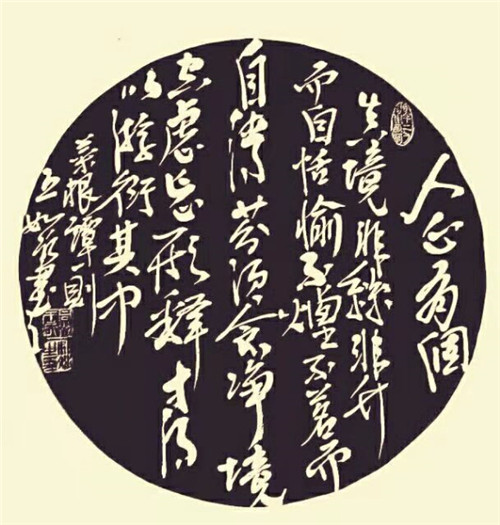 人心有個
真境非絲非竹
而自恬愉不煙不茗而
自清芬須念净境
空慮忘形釋才得
以游衍其中
菜根譚一則